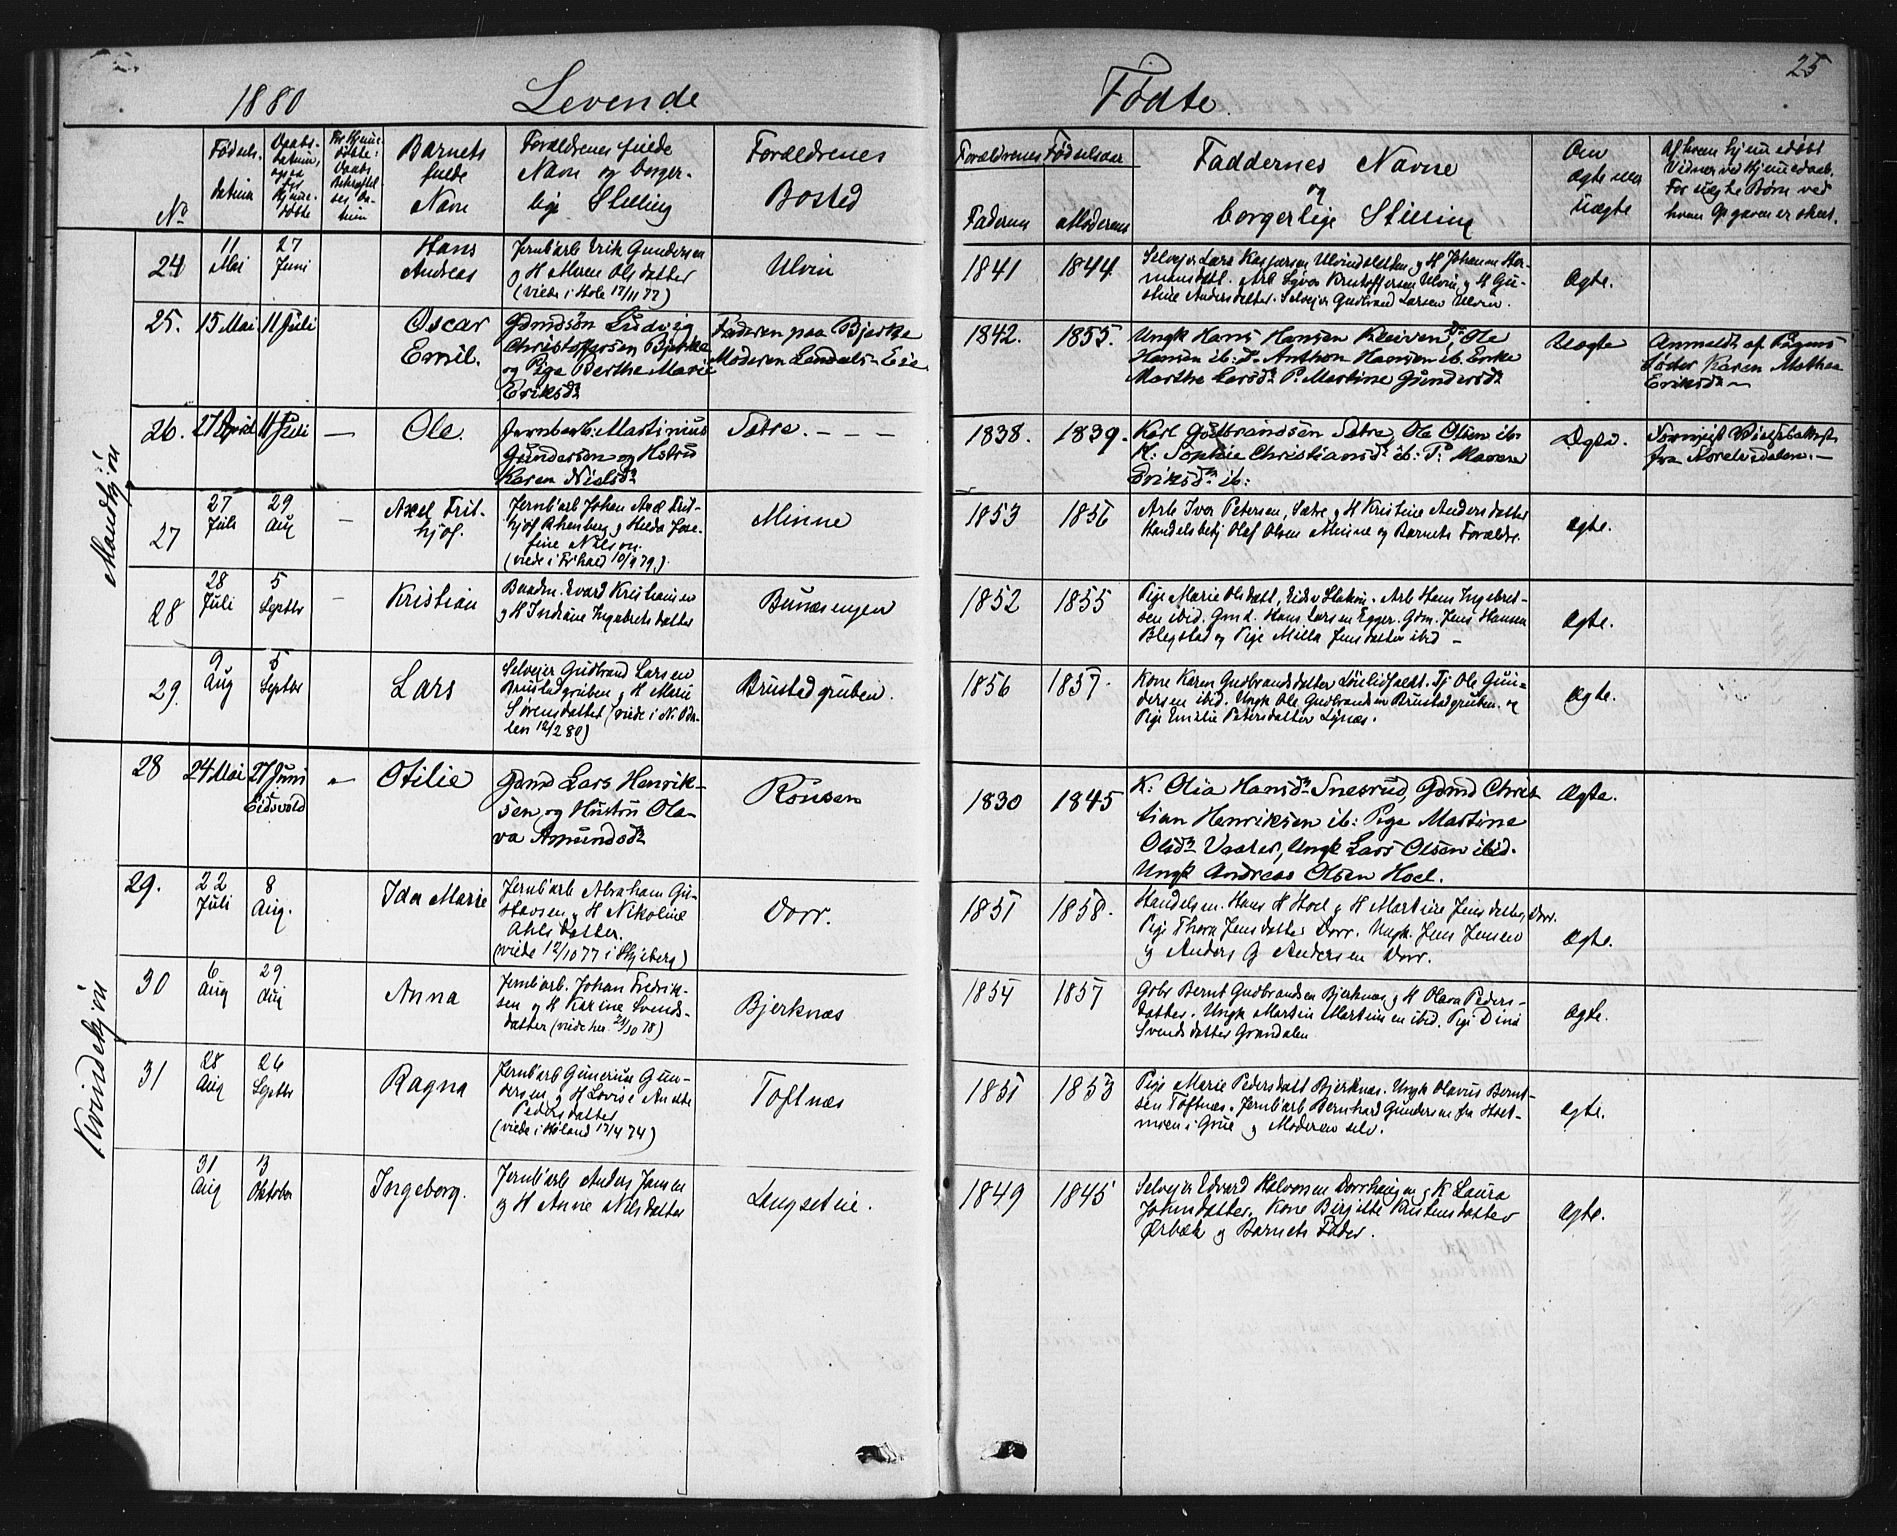 25
1880 Levende Fødte.
No
Fødsels-
datum
Daabs-
datum,
Barnets
fulde
Navn
Forældrenes fulde
Navn og borger-
lige Stilling
Forældrenes
Bosted
Forældrenes Fødselsaar
Faderens Moderens
Faddernes Navne
og
borgerlige Stilling
Om
ægte eller
uægte
Af hvem hjemmedøbt
Vidner ved Hjemmedaab.
For uægte Børn ved
hvem Opgaven er skeet.
Mandkjøn
24
11
Mai
27
Juni
Hans
Andreas
Jernb'arb Erik Gundersen
og H Maren Olsdatter
(viede i Hole 17/11 72)
Ulvin
1841 1844
Selvejer Lars Kaspersen Ulvinsletten og H Johanne Her-
mansdatt. Arb Syver Kristoffersen Ulvin og H Gu-
stine Andersdatter. Selvejer Gudbrand Larsen Ulvin.
Ægte.
25. 15 Mai 11 Juli
Oscar
Emil.
Gbmdsøn Ludvig
Christoffersen Bjerke
og Pige Berthe Marie
Eriksdr
Faderen paa Bjerke
Moderen Landals-Eie
1842. 1855.
Ungk Hans Hansen Kleiven, Do Ole
Hansen ib: Do Anthon Hansen ib. Enke
Marthe Larsdr P. Martine Gundersdr
Uægte
Anmeldt af Pigens
Søster Karen Mathea
Eriksdr
26. 27 April 11 Juli —
Ole.
Jernbarb. Martinius
Gundersen og Hustru
Karen Nielsdr
Sætre. — — —
1838. 1839.
Karl Gudbrandsen Sætre, Ole Olsen ib:
K: Sophie Christiansdr ib: P: Maren
Eriksdr ib:
Ægte.
fra
27
27
Juli
29
Aug
—
Axel Frit-
hjof.
Jernb'arb Johan Axel Frit-
hjof
fine Nilson.
Minne
1853 1856
Arb Ivar Petersen, Sætre og H Kristine Andersdatter
Handelsbetj Olaf Olsen Minne og Barnets Forældre.
Ægte.
28
28
Juli
5
Septbr
—
Kristian
Baadm. Evard Kristiansen
og H Indiane Ingebretsdatter
Bunæsengen
1852 1855
Pige Marie Olsdatt, Eidsv Station. Arb Hans Ingebret-
sen ibid. Gmd. Hans Larsen Egger. Gbm. Jens Hansen
Blegstad og Pige Milla Jensdatter ibid —
Ægte.
29.
9
Aug
5
Septbr
Lars
Selvejer Gudbrand Larsen
Brustadgruben og H Marie
Sørensdatter (viede i N. Oda-
len 12/2 80)
Brustadgruben.
1856 1857.
Kone Karen Gudbrandsdatter Tj Ole Gun-
dersen ibid. Ungk Ole Gudbrandsen Brustadgruben. og
Pige Emilie Petersdatter Lynæs.
Ægte.
Kvindekjøn
28 24 Mai 27 Juni
Eidsvold
Otilie
Gbmd Lars Henrik-
sen og Hustru Ola-
va Amundsdr
Rønsen
1830 1845
K: Olia Hansdr Snesrud, Gbmd Chris
tian Henriksen ib: Pige Martine
Olsdr Vaarer, Ungk Lars Olsen ibid.
Ungk Andreas Olsen Hoel.
Ægte.
29.
22
Juli
8
Aug.
Ida Marie
Jernb'arb Abraham Gu-
stavsen og H Nikoline
Ahlsdatter.
(viede 12/10 77 i Skjeberg)
Dorr.
1851 1858.
Handelsm. Hans H Hoel og H Martine Jensdatter, Dorr.
Pige Thora Jensdatter Dorr. Ungk. Jens Jensen
og Anders G Andersen Dorr.
Ægte.
30
6
Aug
29
Aug
Anna
Jernb'arb. Johan Fredrik-
sen og H Karine Svends-
datter (viede her. 21/10 78)
Bjerknæs
1854 1857
Gbr Bernt Gudbrandsen Bjerknæs og H Olava Peders-
datter. Ungk Martin Martinsen ibid. Pige Dina
Svendsdatter Grændalen
Ægte.
31
28
Aug
26
Septbr
Ragna
Jernb'arb Gunerius Gun-
dersen og H Lovise Anette
Pedersdatter
(viede i Høland 17/4 74)
Toftnæs
1851 1853
Pige Marie Pedersdatt Bjerknæs. Ungk Olavus Bernt-
sen Toftnæs. Jernb'arb Bernhard Gundersen fra Hoel-
moen i Grue og Moderen selv.
Ægte.
31
Aug
3
Oktober
Ingeborg.
Jernb'arb Anders Jansen
og H Anne Nilsdatter
Langseteie.
1849 1845
Selvejer Edvard Halvorsen Dorrhaugen og K Laura
Johnsdatter. Kone Birgitte Kristensdatter
Ørbæk og Barnets Fader.
Ægte.